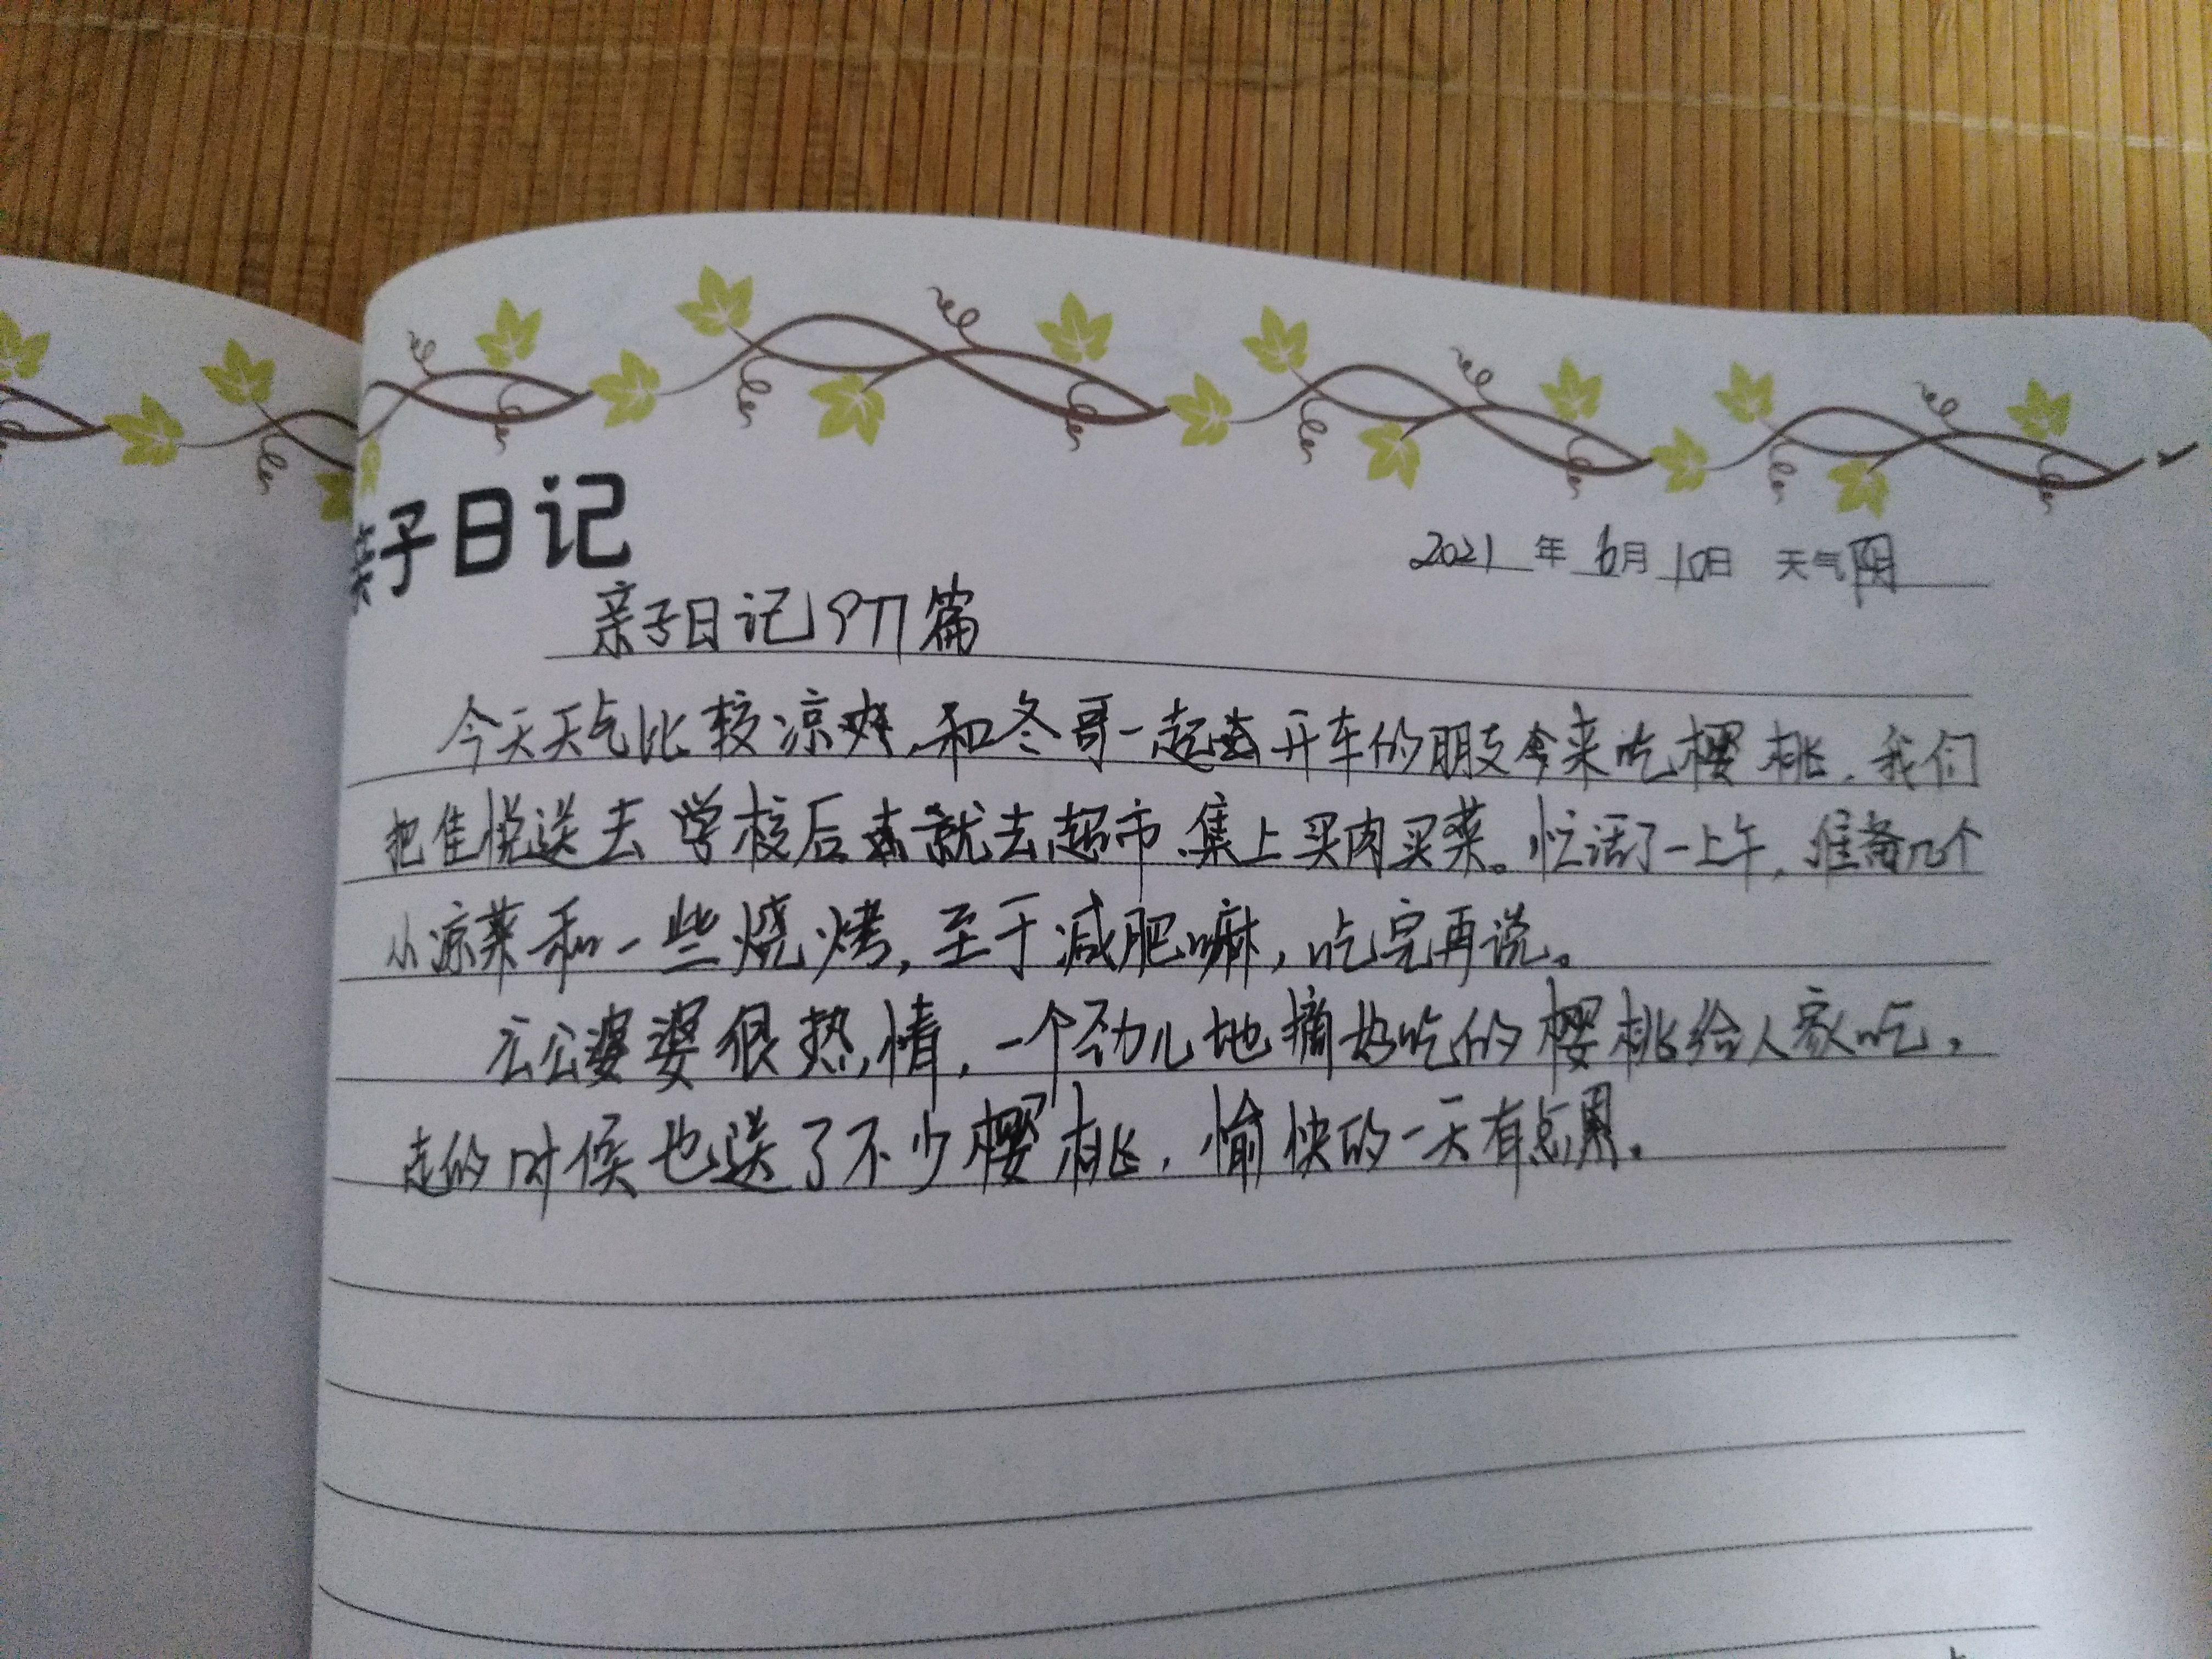 亲子日记
2021年6月10日 天气阴
亲子日记977篇
今天天气比较凉爽,和冬哥一起去开车的朋友会来吃樱桃,我们
把佳悦送去学校后就去超市、集上买肉买菜。忙活了一上午,准备几个
小凉菜和一些烧烤,至于减肥嘛,吃完再说。
公公婆婆很热情,一个劲儿地摘好吃的樱桃给人家吃,
走的时候也送了不少樱桃,愉快的一天有点累。